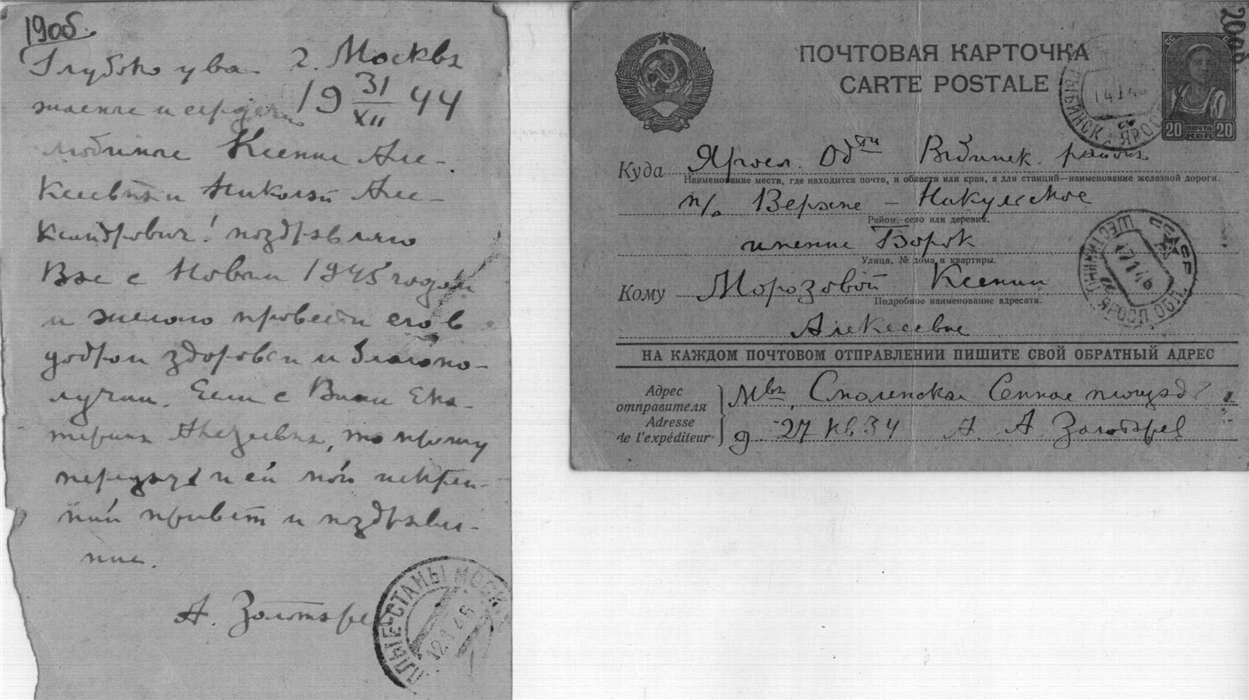 1906.
Глубоко ува- г. Москва
жаемые и сердечно 19 31/XII 44
любимые Ксения Але-
ксеевна и Николай Але-
ксандрович! поздравляю
Вас с Новым 1945 годом
и желаю провести его в
добром здоровьи и благопо-
лучии. Если с Вами Ека-
терина
то прошу
передать и ей мой искрен-
ний привет и поздравле-
ние.
А. Золотарев
СТАНЫ МОСК
12.1.45
2006
ПОЧТОВАЯ КАРТОЧКА
CARTE POSTALE
РЫБИНСК ЯРОСЛ
20 ПОЧТА 20
Куда Яросл. Обл
района
Наименование места, где находится почта, и области или края, а для станций—наименование железной дороги.
п/о Верхне - Никульское
Район, село или деревня.
имение Борок
Улица, № дома и квартиры.
Кому Морозовой Ксении
Подробное наименование адресата.
Алексеевне
ЯРОСЛ ОБЛ
НА КАЖДОМ ПОЧТОВОМ ОТПРАВЛЕНИИ ПИШИТЕ СВОЙ ОБРАТНЫЙ АДРЕС
Адрес отправителя
Adresse de l'expéditeur
Мва, Смоленская Сенная площадь
д 27 кв 34 А. А. Золотарев